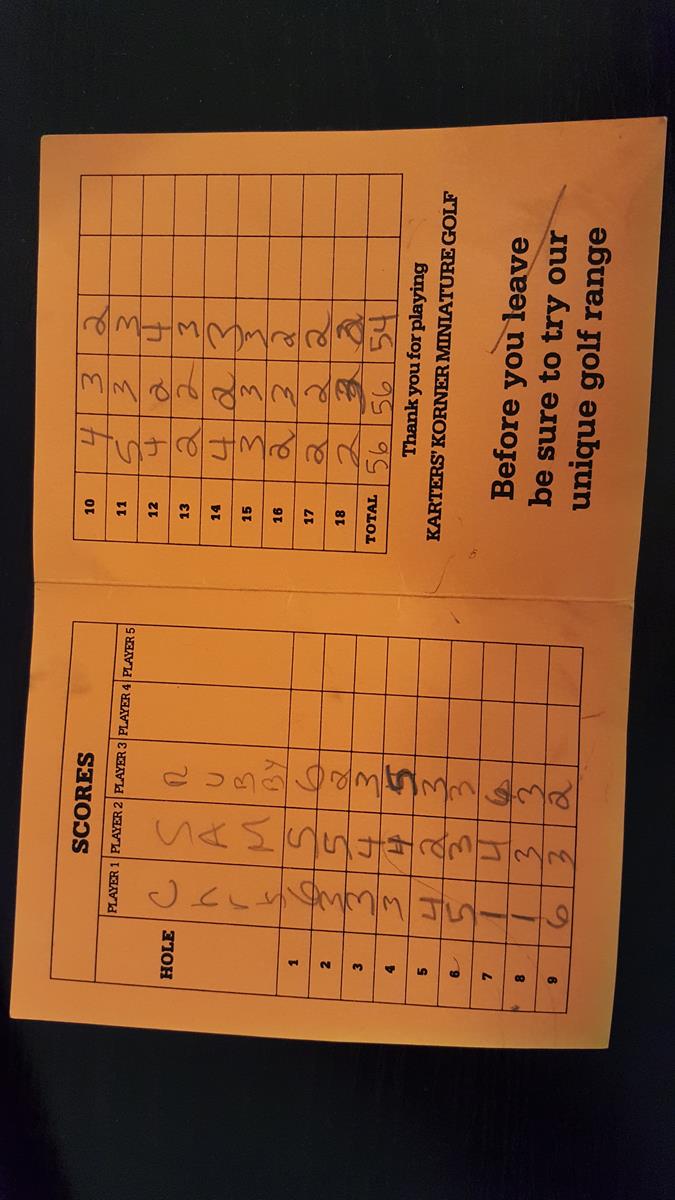 SCORES
PLAYER 1 PLAYER 2 PLAYER 3 PLAYER 4 PLAYER 5
HOLE
C S R
h A U
r M B
s BY
1 6 5 6
2 3 5 2
3 3 4 3
4 3 4 5
5 4 2 3
6 5 3 3
7 1 4
8 1 3 3
9 6 3 2
10 4 3 2
11 5 3 3
12 4 2 4
13 2 2 3
14 4 2 3
15 3 3 3
16 2 3 2
17 2 2 2
18 2 3 2
TOTAL 56 56 54
Thank you for playing
KARTERS' KORNER MINIATURE GOLF
Before you leave
be sure to try our
unique golf range